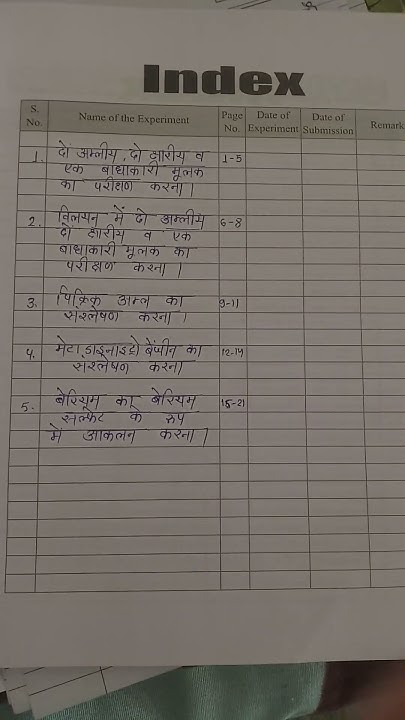 Index
S. No. Name of the Experiment Page No. Date of Experiment Date of Submission Remark
1. दो अम्लीय, दो क्षारीय व 1-5
एक बाधाकारी मूलक
का परीक्षण करना।
2. विलयन में दो अम्लीय 6-8
दो क्षारीय व एक
बाधाकारी मूलक का
परीक्षण करना।
3. पिक्रिक अम्ल का 9-11
संश्लेषण करना।
4. मेटा डाइनाइट्रो बेंजीन का 12-14
संश्लेषण करना
5. बेरियम का बेरियम 15-21
सल्फेट के रुप
में आकलन करना।